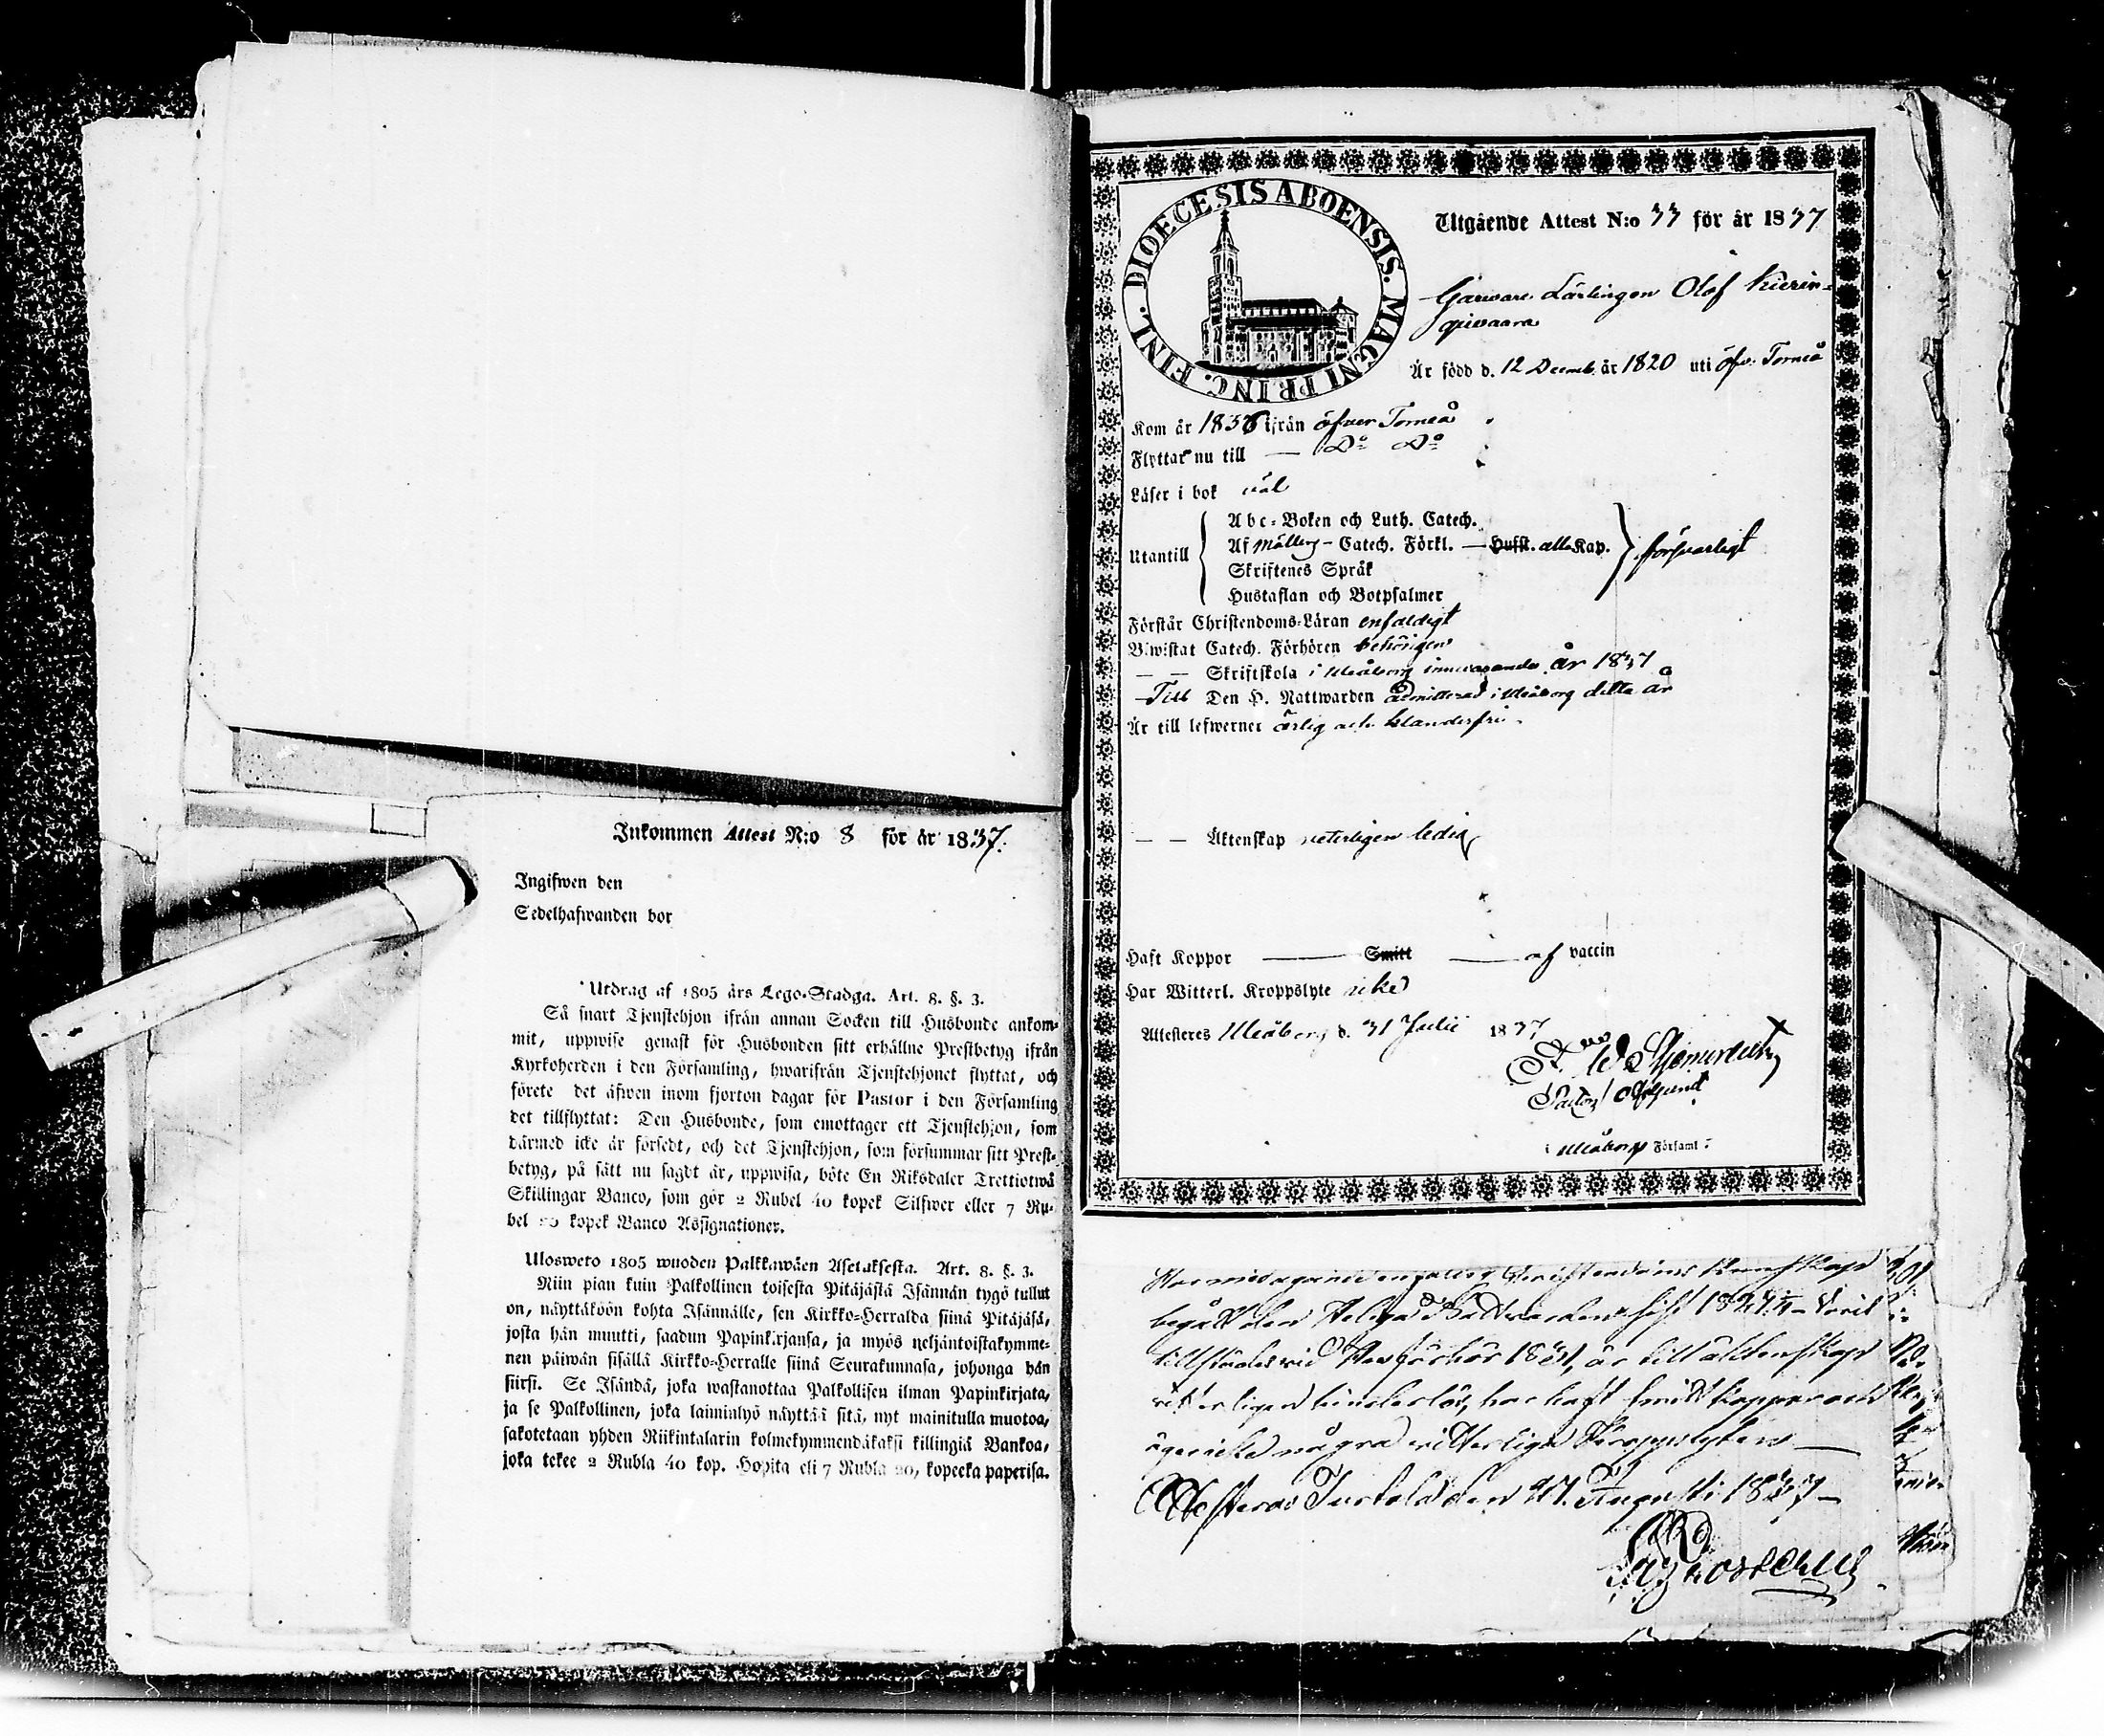 Inkommen Attest N:o 8 för år 1837.
Ingifwen den
Sedelhafwanden bor
Utdrag af 1805 års Lego-Stadga. Art. 8. §. 3.
Så snart Tjenstehjon ifrån annan Socken till Husbonde ankom-
mit, uppwise genast för Husbonden sitt erhållne Prestbetyg ifrån
Kyrkoherden i den Församling, hwarifrån Tjenstehjonet flyttat, och
förete det äfwen inom fjorton dagar för Pastor i den Församling
det tillflyttat: Den Husbonde, som emottager ett Tjenstehjon, som
därmed icke är försedt, och det Tjenstehjon, som försummar sitt Prest-
betyg, på sätt nu sagdt är, uppwisa, böte En Riksdaler Trettiotwå
Skillingar Banco, som gör 2 Rubel 40 kopek Silfwer eller 7 Ru-
bel 20 kopek Banco Assignationer.
Ulosweto 1805 wuoden Palkkawäen Asetuksesta. Art. 8. §. 3.
Niin pian kuin Palkollinen toisesta Pitäjästä Isännän tygö tullut
on, näyttäköön kohta Isännälle, sen Kirkko-Herralda siinä Pitäjäsä,
josta hän muutti, saadun Papinkirjansa, ja myös neljäntoistakymme-
nen päiwän sisällä Kirkko-Herralle siinä Seurakunnasa, johonga hän
siirsi. Se Isändä, joka wastanottaa Palkollisen ilman Papinkirjata,
ja se Palkollinen, joka laiminlyö näyttää sitä, nyt mainitulla muotoa,
sakotetaan yhden Riikintalarin kolmekymmendäkaksi killingiä Bankoa,
joka tekee 2 Rubla 40 kop. Hopita eli 7 Rubla 20, kopeeka paperisa.
DIOECESIS ABOENSIS. MAGNI PRINC. FINL.
Utgående Attest N:o 33 för år 1837
Garware Lärlingen Olof Kierin-
givaara
Är född d. 12 Decemb. år 1820 uti öfv. Torneå
Kom år 1836 ifrån öfver Torneå
Flyttar nu till — Do Do
Läser i bok väl
Abc-Boken och Luth. Catech.
Utantill Af Möllers Catech. Förkl. — Hufst. alla Kap. försvarligt
Skriftenes Språk
Hustaflan och Botpsalmer
Förstår Christendoms-Läran enfaldigt
Biwistat Catech. Förhören behörigen
— — Skriftskola i Uleåborg innevarande år 1837
Till Den H. Nattwarden admitterad i Uleåborg detta år
Är till lefwernet ärlig och klanderfri
— — Äktenskap veterligen ledig
Haft Koppor — Smitt — af vaccin
Har Witterl. Kroppslyte icke
Attesteres Uleåborg d. 31 Julii 1837
Uleåborgs Församl:
begått den Heliga Nattvarden sist
tillstädes vid Läsförhör 1837, är till äktenskap
veterligen hinderslös, har haft smittkoppor och
äger icke några witterliga Kroppslyten —
Attesteras Turtola den 27. Augusti 1837 —